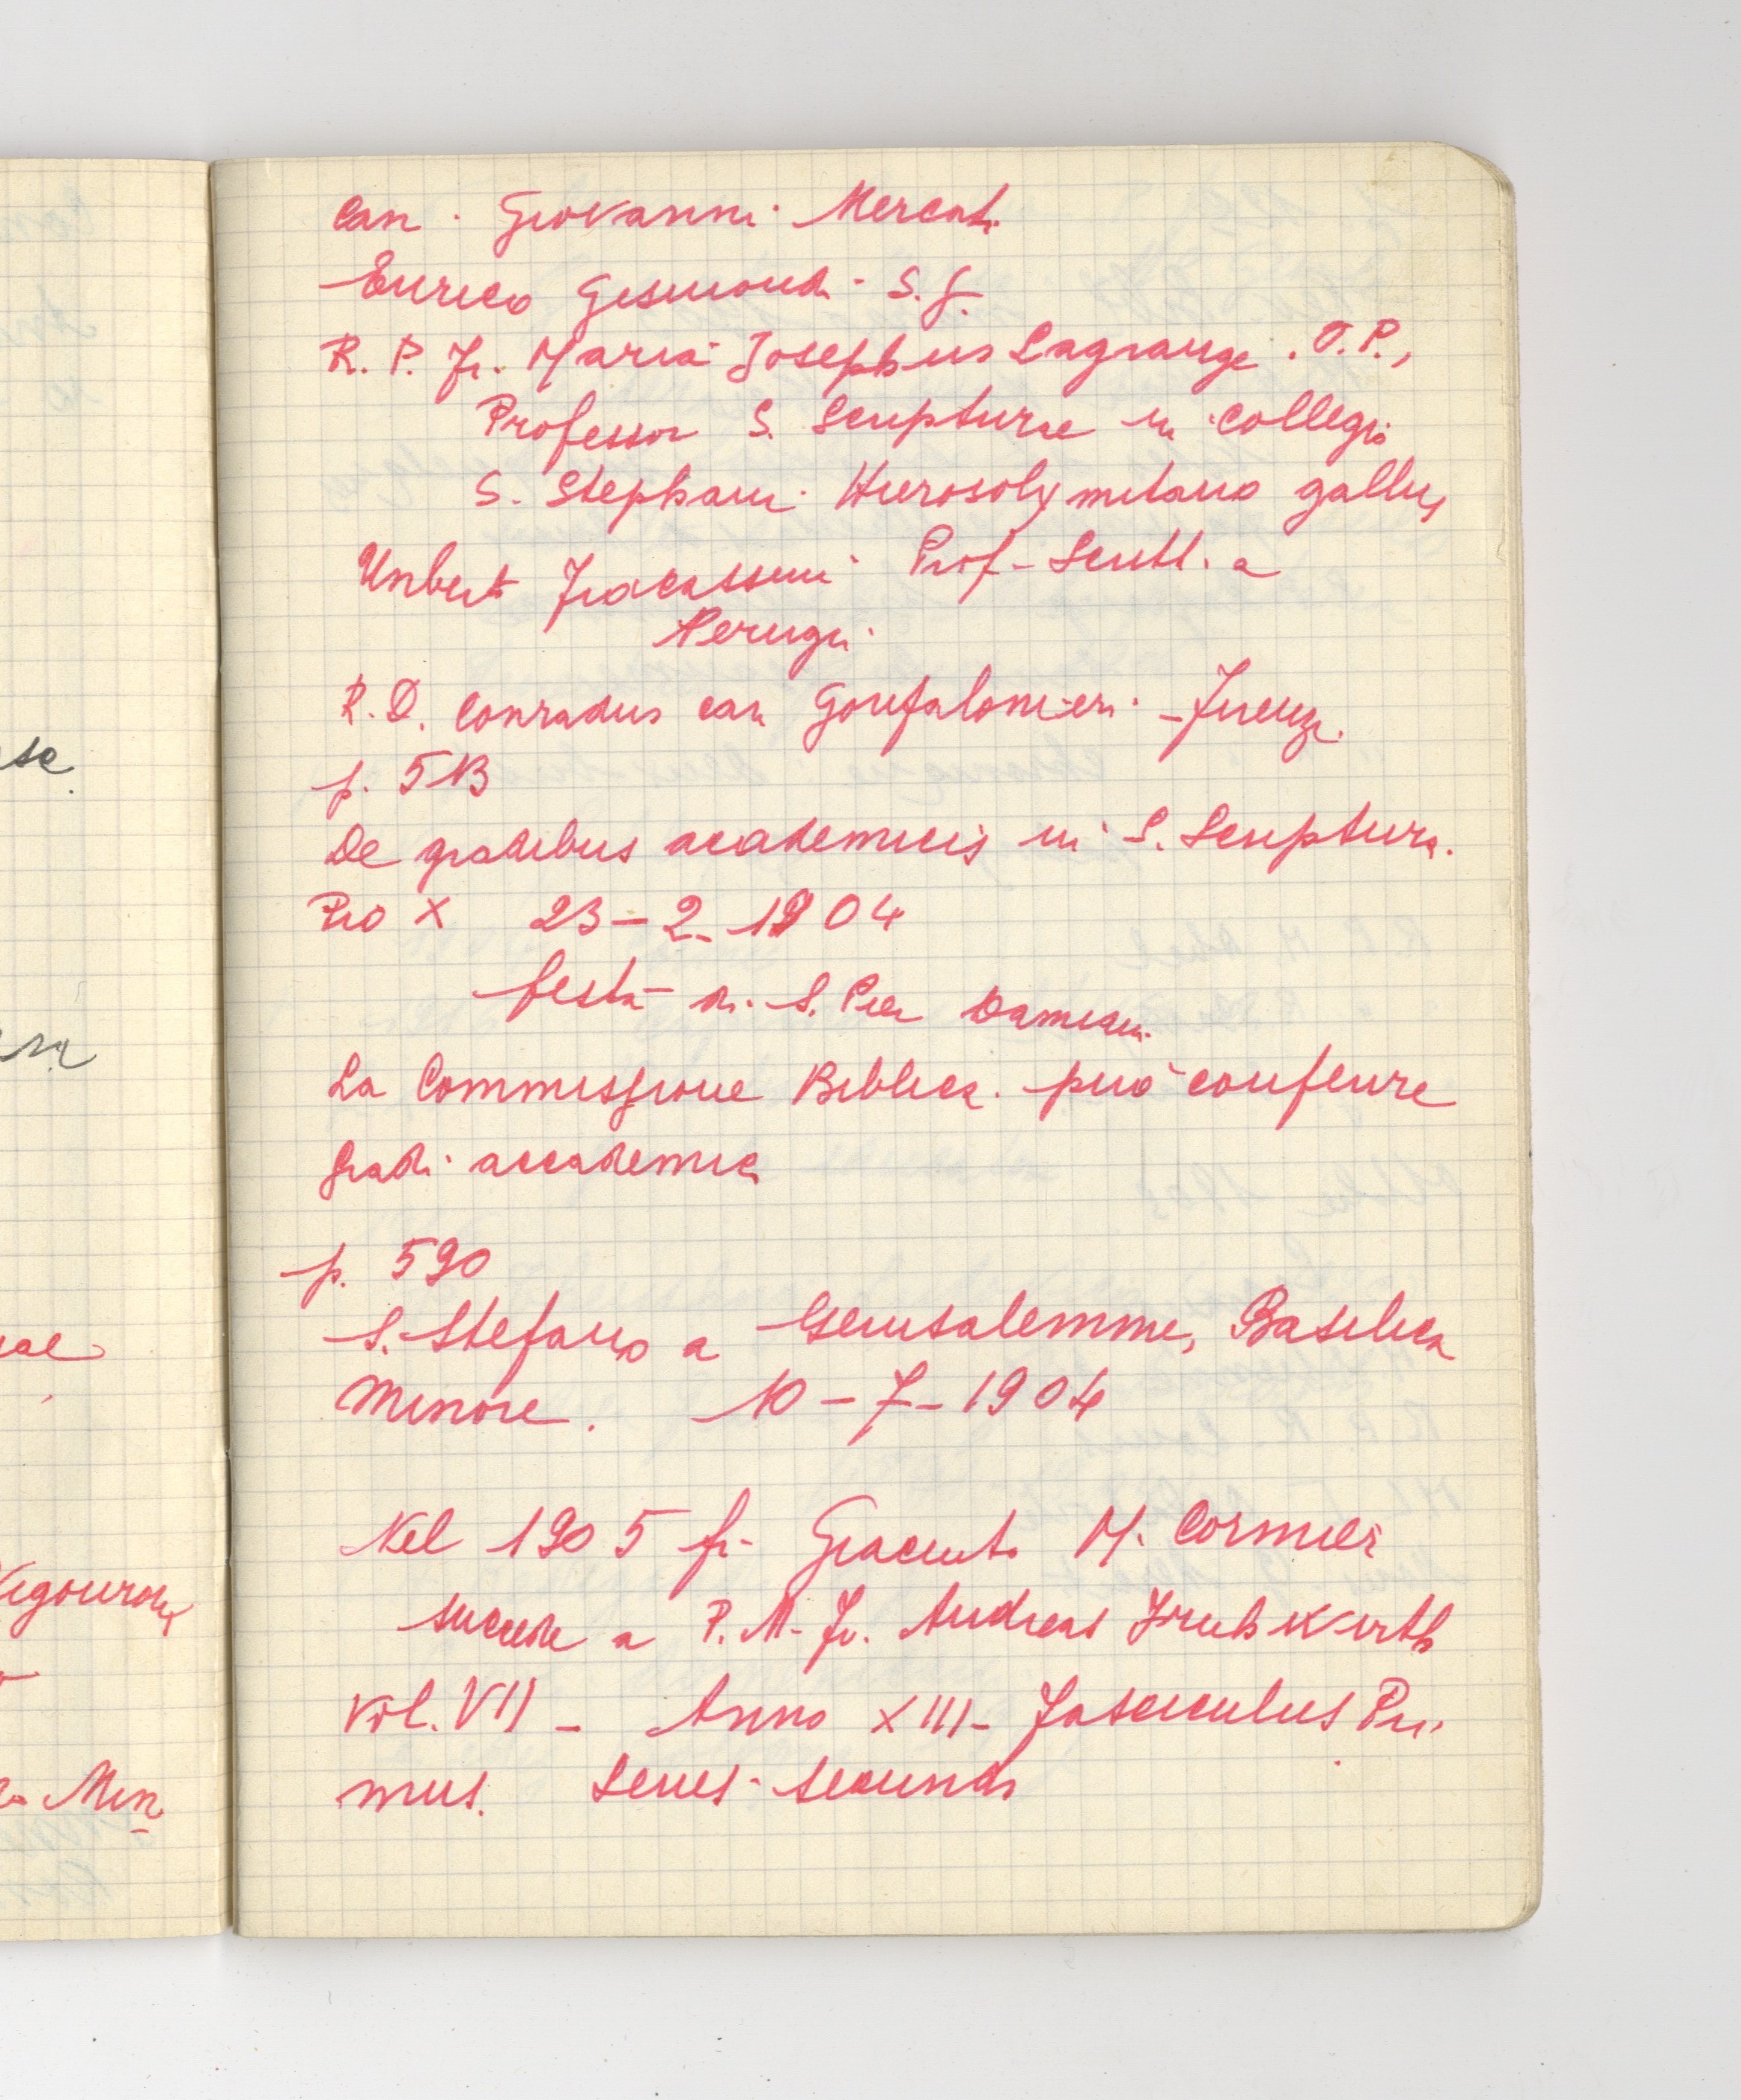 Can. Giovanni Mercati
Enrico Gismondi - S.J.
R. P. Fr. Maria Josephus Lagrange. O.P.,
Professor S. Scripturae in collegio
S. Stephani Hierosolymitano gallus
Umberto Fracassini Prof- Scritt. a
Perugia
R.D. Conradus can Gonfalonieri - Firenze.
p. 513
De gradibus academicis in S. Scriptura.
Pio X 23-2-1904
festa di S. Pier Damiani
La Commissione Biblica può conferire
gradi accademici
p. 590
S. Stefano a Gerusalemme, Basilica
Minore. 10-7-1904
Nel 1905 fr. Giacinto M. Cormier
succede a P. M. Fr. Andreas Fruhwirth
Vol. VII - Anno XIII - Fasciculus Pri-
mus. Series secunda
se.
Vigouroux
Min